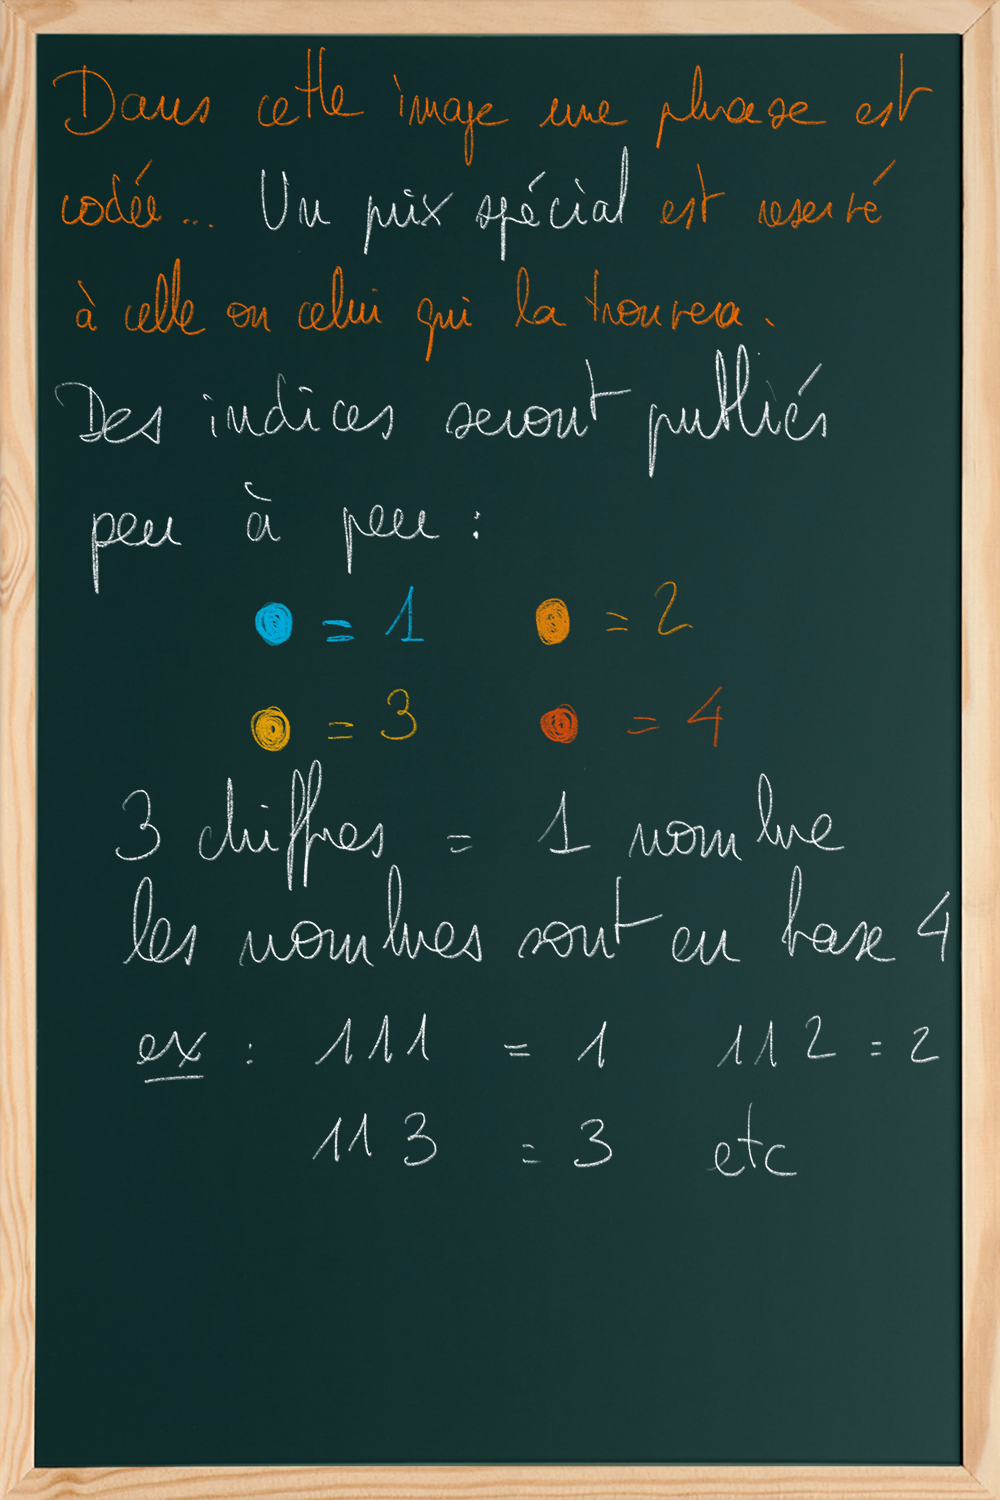 Dans cette image une phrase est
codée... Un prix spécial est reservé
à celle ou celui qui la trouvera.
Des indices seront publiés
peu à peu :
= 1 = 2
= 3 = 4
3 chiffres = 1 nombre
les nombres sont en base 4
ex : 111 = 1 112 = 2
113 = 3 etc